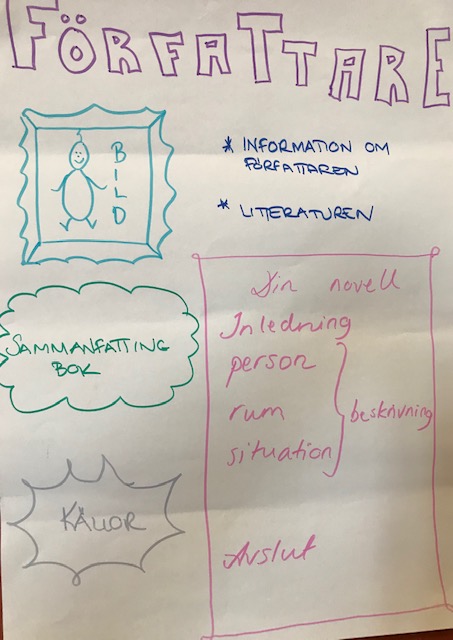 FÖRFATTARE
BILD
* INFORMATION OM
FÖRFATTAREN
* LITTERATUREN
SAMMANFATTING
BOK
KÄLLOR
Din novell
Inledning
person
rum
situation
beskrivning
Avslut